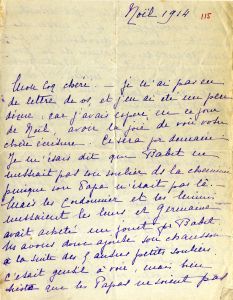 Noël 1914
115
Mon Coq chéri. – je n'ai pas eu
de lettre de vs, et j'en ai été un peu
car j'avais espéré, en ce jour
de Noël, avoir la joie de voir votre
chère écriture. Ce sera pr demain
Je m'étais dit que Babet ne
mettrait pas son soulier ds la cheminée
puisque son Papa n'était pas là.
Mais les Cordonnier et les
mettaient les leurs et Germaine
avait acheté un jouet pr Babet
Ns avons donc ajouté son chausson
à la suite des 7 autres petits souliers
c'était gentil à voir, mais bien
triste que les Papas ne soient pas